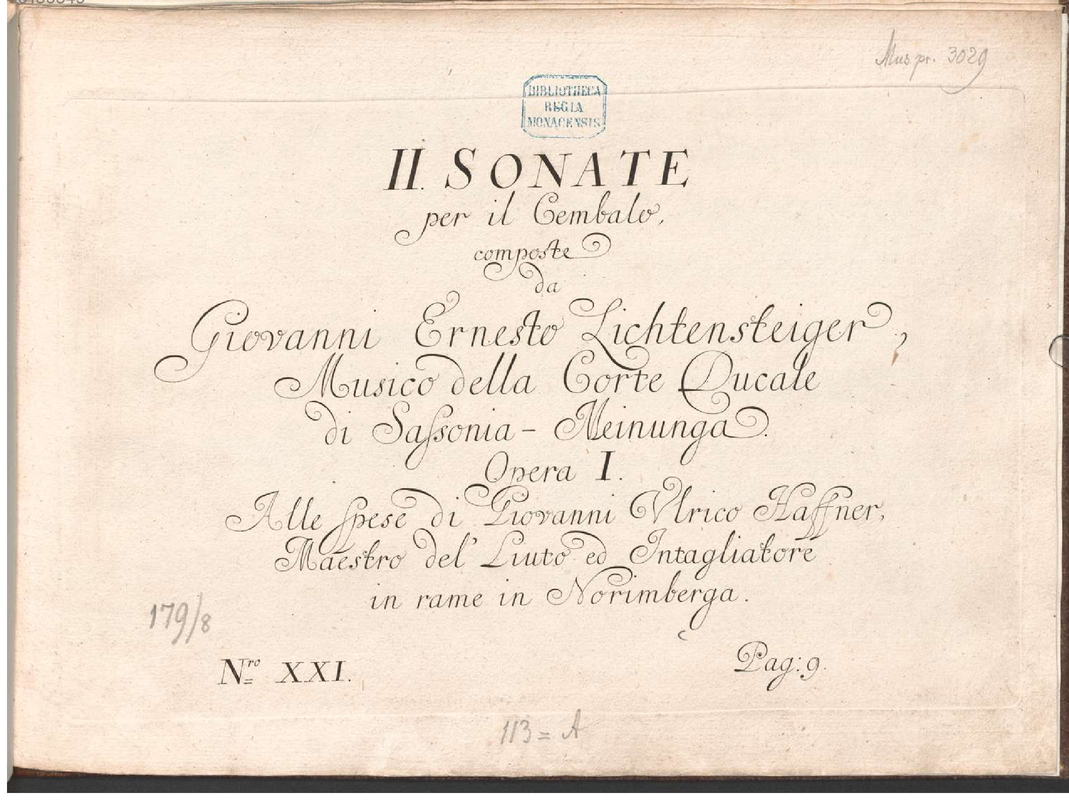 Mus. pr. 3029
BIBLIOTHECA
REGIA
MONACENSIS
II. SONATE
per il Cembalo,
composte
da
Giovanni Ernesto Lichtensteiger,
Musico della Corte Ducale
di Saſsonia - Meinunga.
Opera I.
Alle ſpese di Giovanni Ulrico Haffner,
Maestro del' Liuto ed Intagliatore
in rame in Norimberga.
179/8
Nro XXI.
Pag: 9.
113 = A